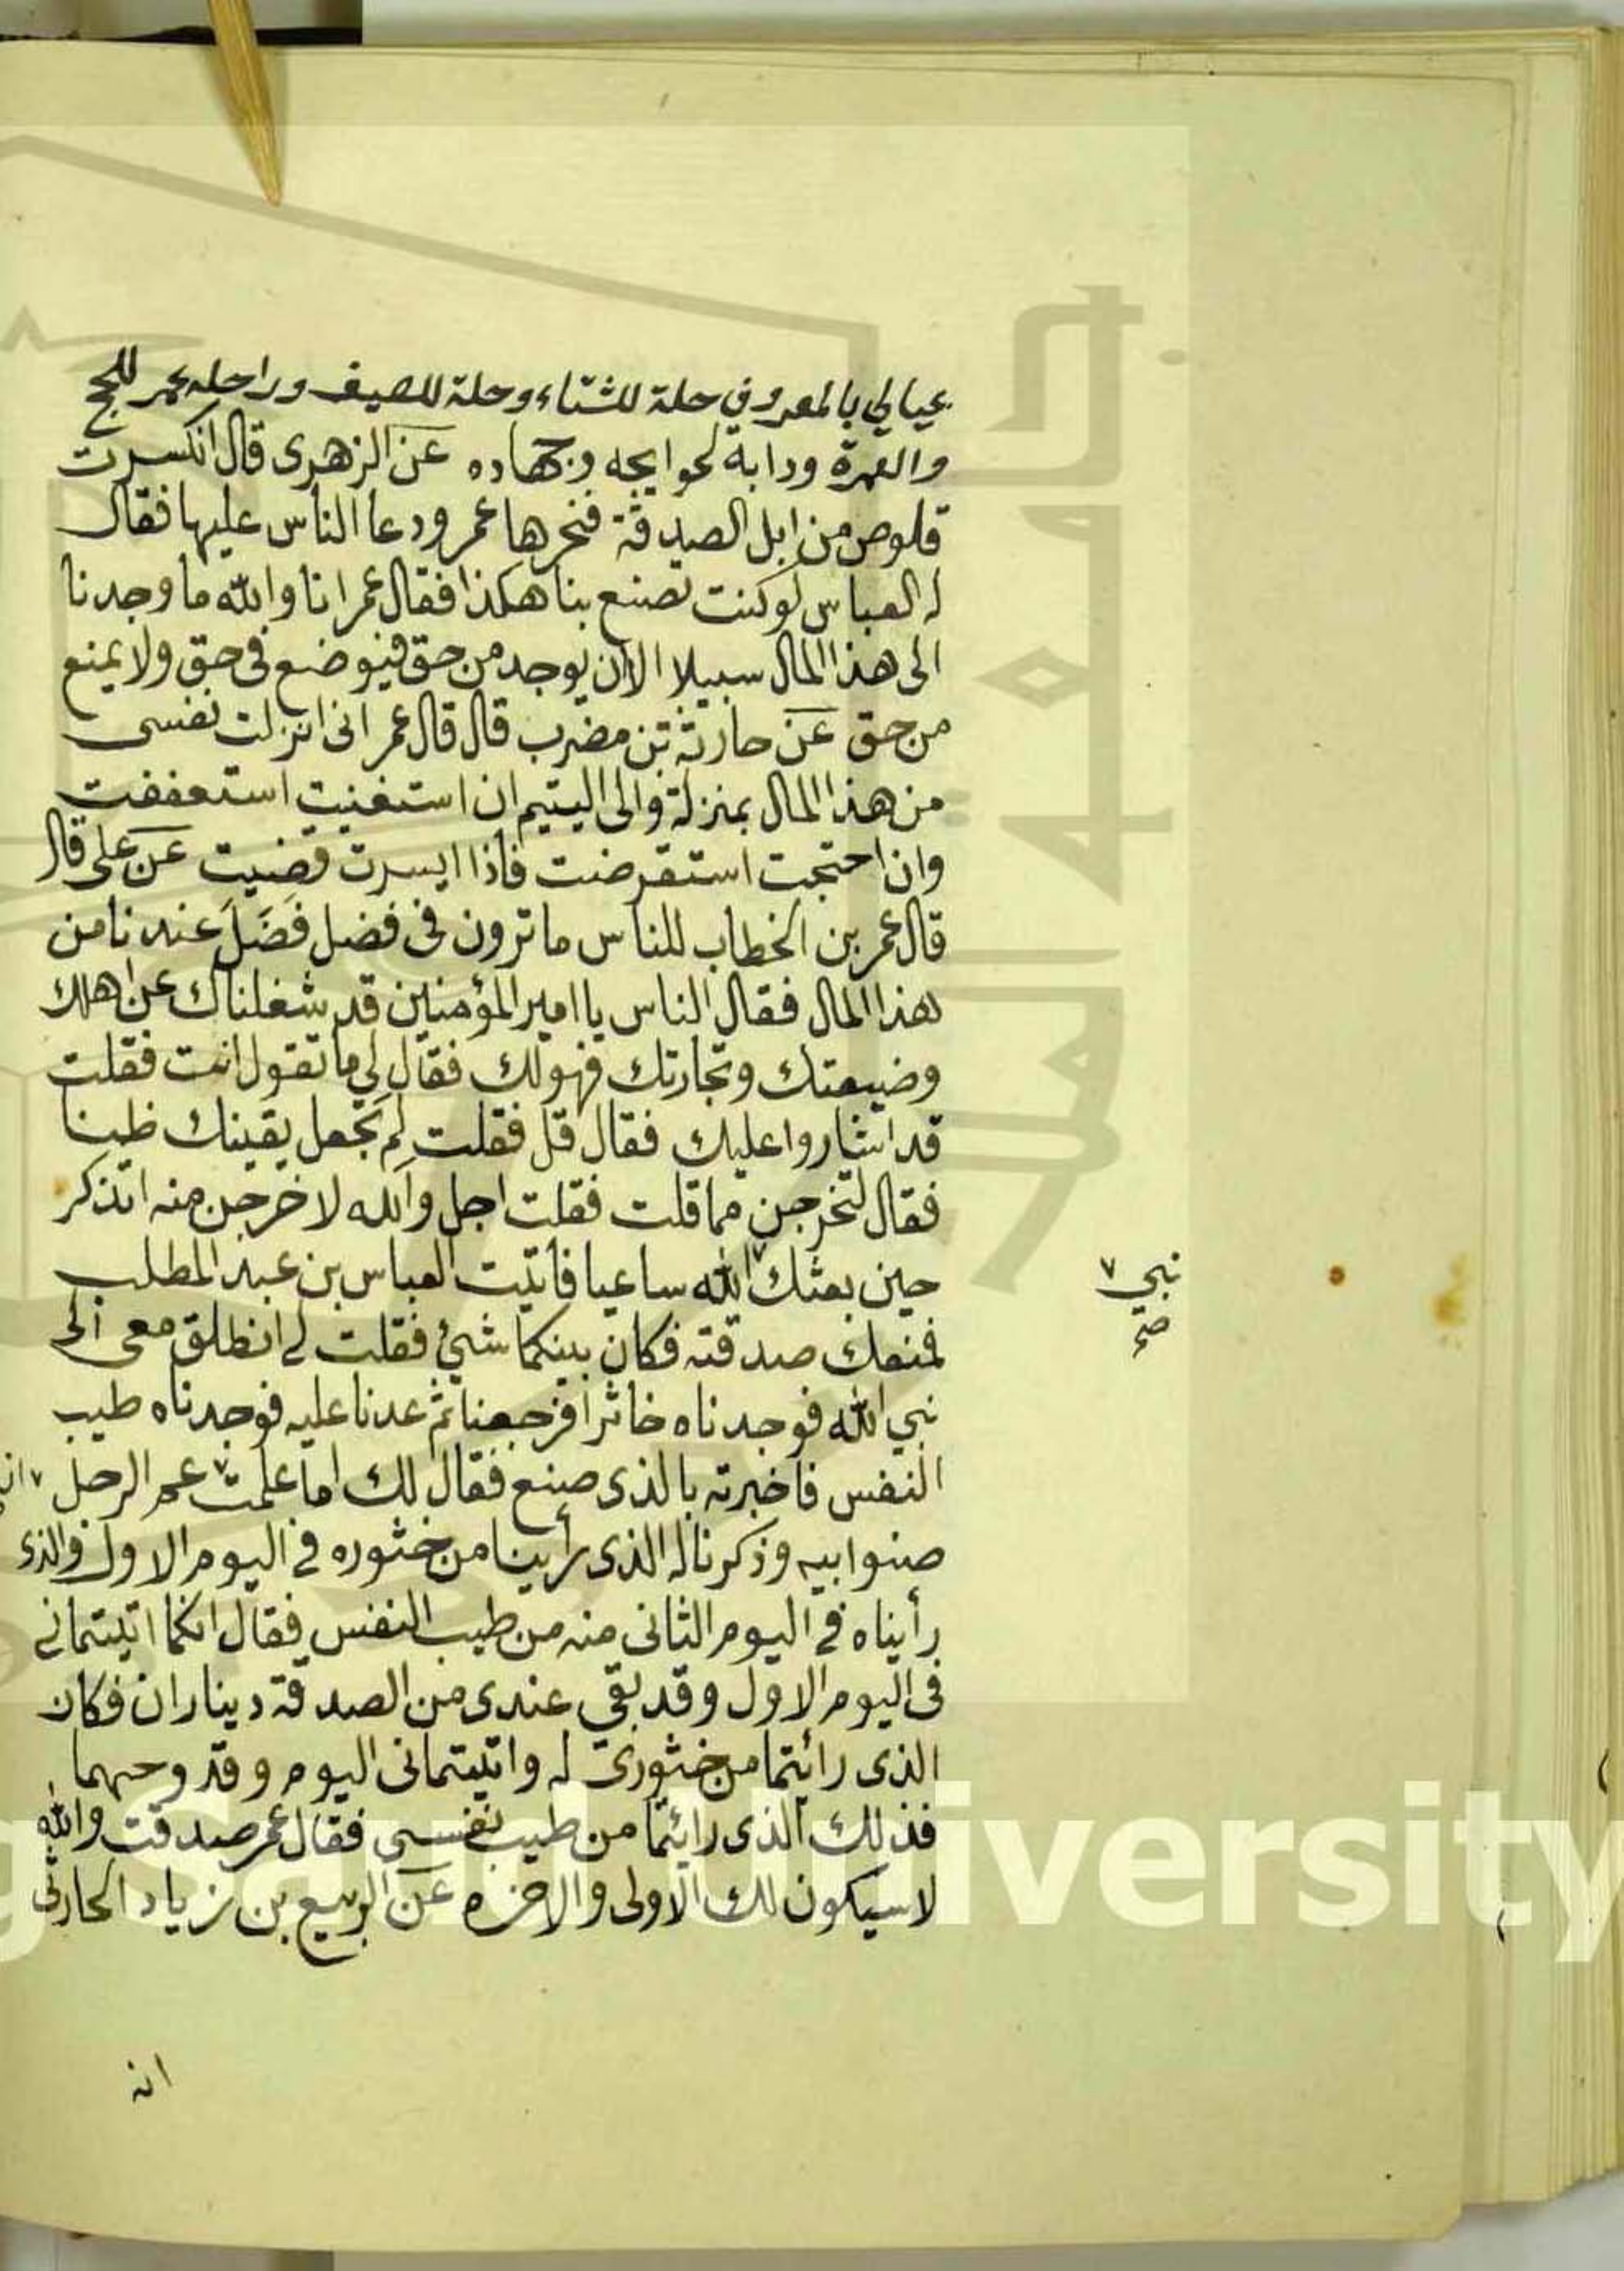 عيالي بالمعروف في حلة للشتاء وحلة للصيف وراحلة عمر للحج
والعمرة ودابة لحوايجه وجهاده عن الزهرى قال انكسرت
قلوص من ابل الصدقة فنحرها عمر ودعا الناس عليها فقال
له العباس لو كنت تصنع بنا هكذا فقال عمر انا والله ما وجدنا
الى هذا المال سبيلا الا ان يوجد من حق فيوضع فى حق ولا يمنع
من حق عن حارثة بن مضرب قال قال عمر انى انزلت نفسى
من هذا المال بمنزلة والى اليتيم ان استغنيت استعففت
وان احتجت استقرضت فاذا ايسرت قضيت عن على قال
قال عمر بن الخطاب للناس ما ترون فى فضل فَضَلَ عندنا من
هذا المال فقال الناس يا امير المؤمنين قد شغلناك عن اهلك
وضيعتك وتجارتك فهو لك فقال لي ما تقول انت فقلت
قد اشاروا عليك فقال قل فقلت لم تجعل يقينك ظنا
فقال لتخرجن مما قلت فقلت اجل والله لاخرجن منه اتذكر
حين بعثك ٧ الله ساعيا فاتيت العباس بن عبد المطلب
نبي ٧
صح
فمنعك صدقته فكان بينكما شئ فقلت لى انطلق معى الى
نبي الله فوجدناه خاثرا فرجعنا ثم عدنا عليه فوجدناه طيب
النفس فاخبرته بالذى صنع فقال لك اما علمت ٧ عم الرجل
صنوابيه وذكرنا له الذى رأينا من خثوره فى اليوم الاول والذى
رأيناه فى اليوم الثانى منه من طيب النفس فقال انكما اتيتمانى
فى اليوم الاول وقد بقي عندى من الصدقة ديناران فكان
الذى رائتما من خثورى له واتيتمانى اليوم وقد وجهما
فذلك الذى رائتما من طيب نفسى فقال عمر صدقت والله
لا سيكون لك الاولى والاخره عن الربيع بن زياد الحارثى
انه
University